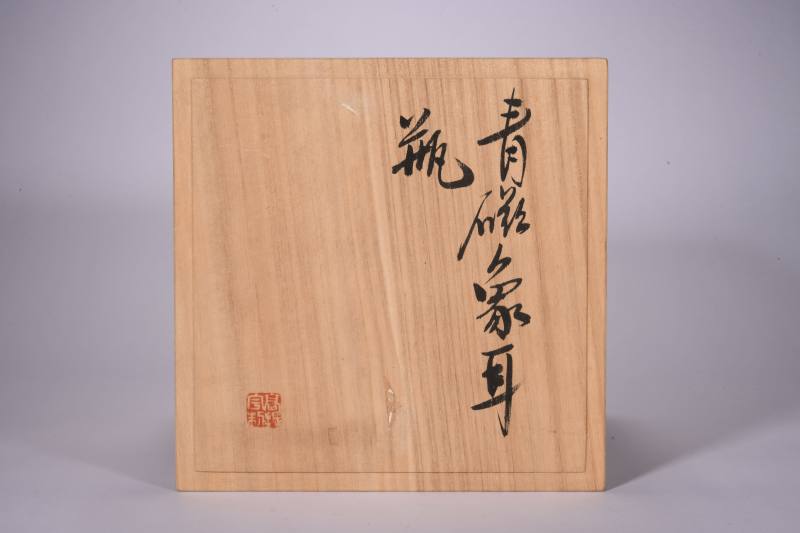 青磁象耳
瓶